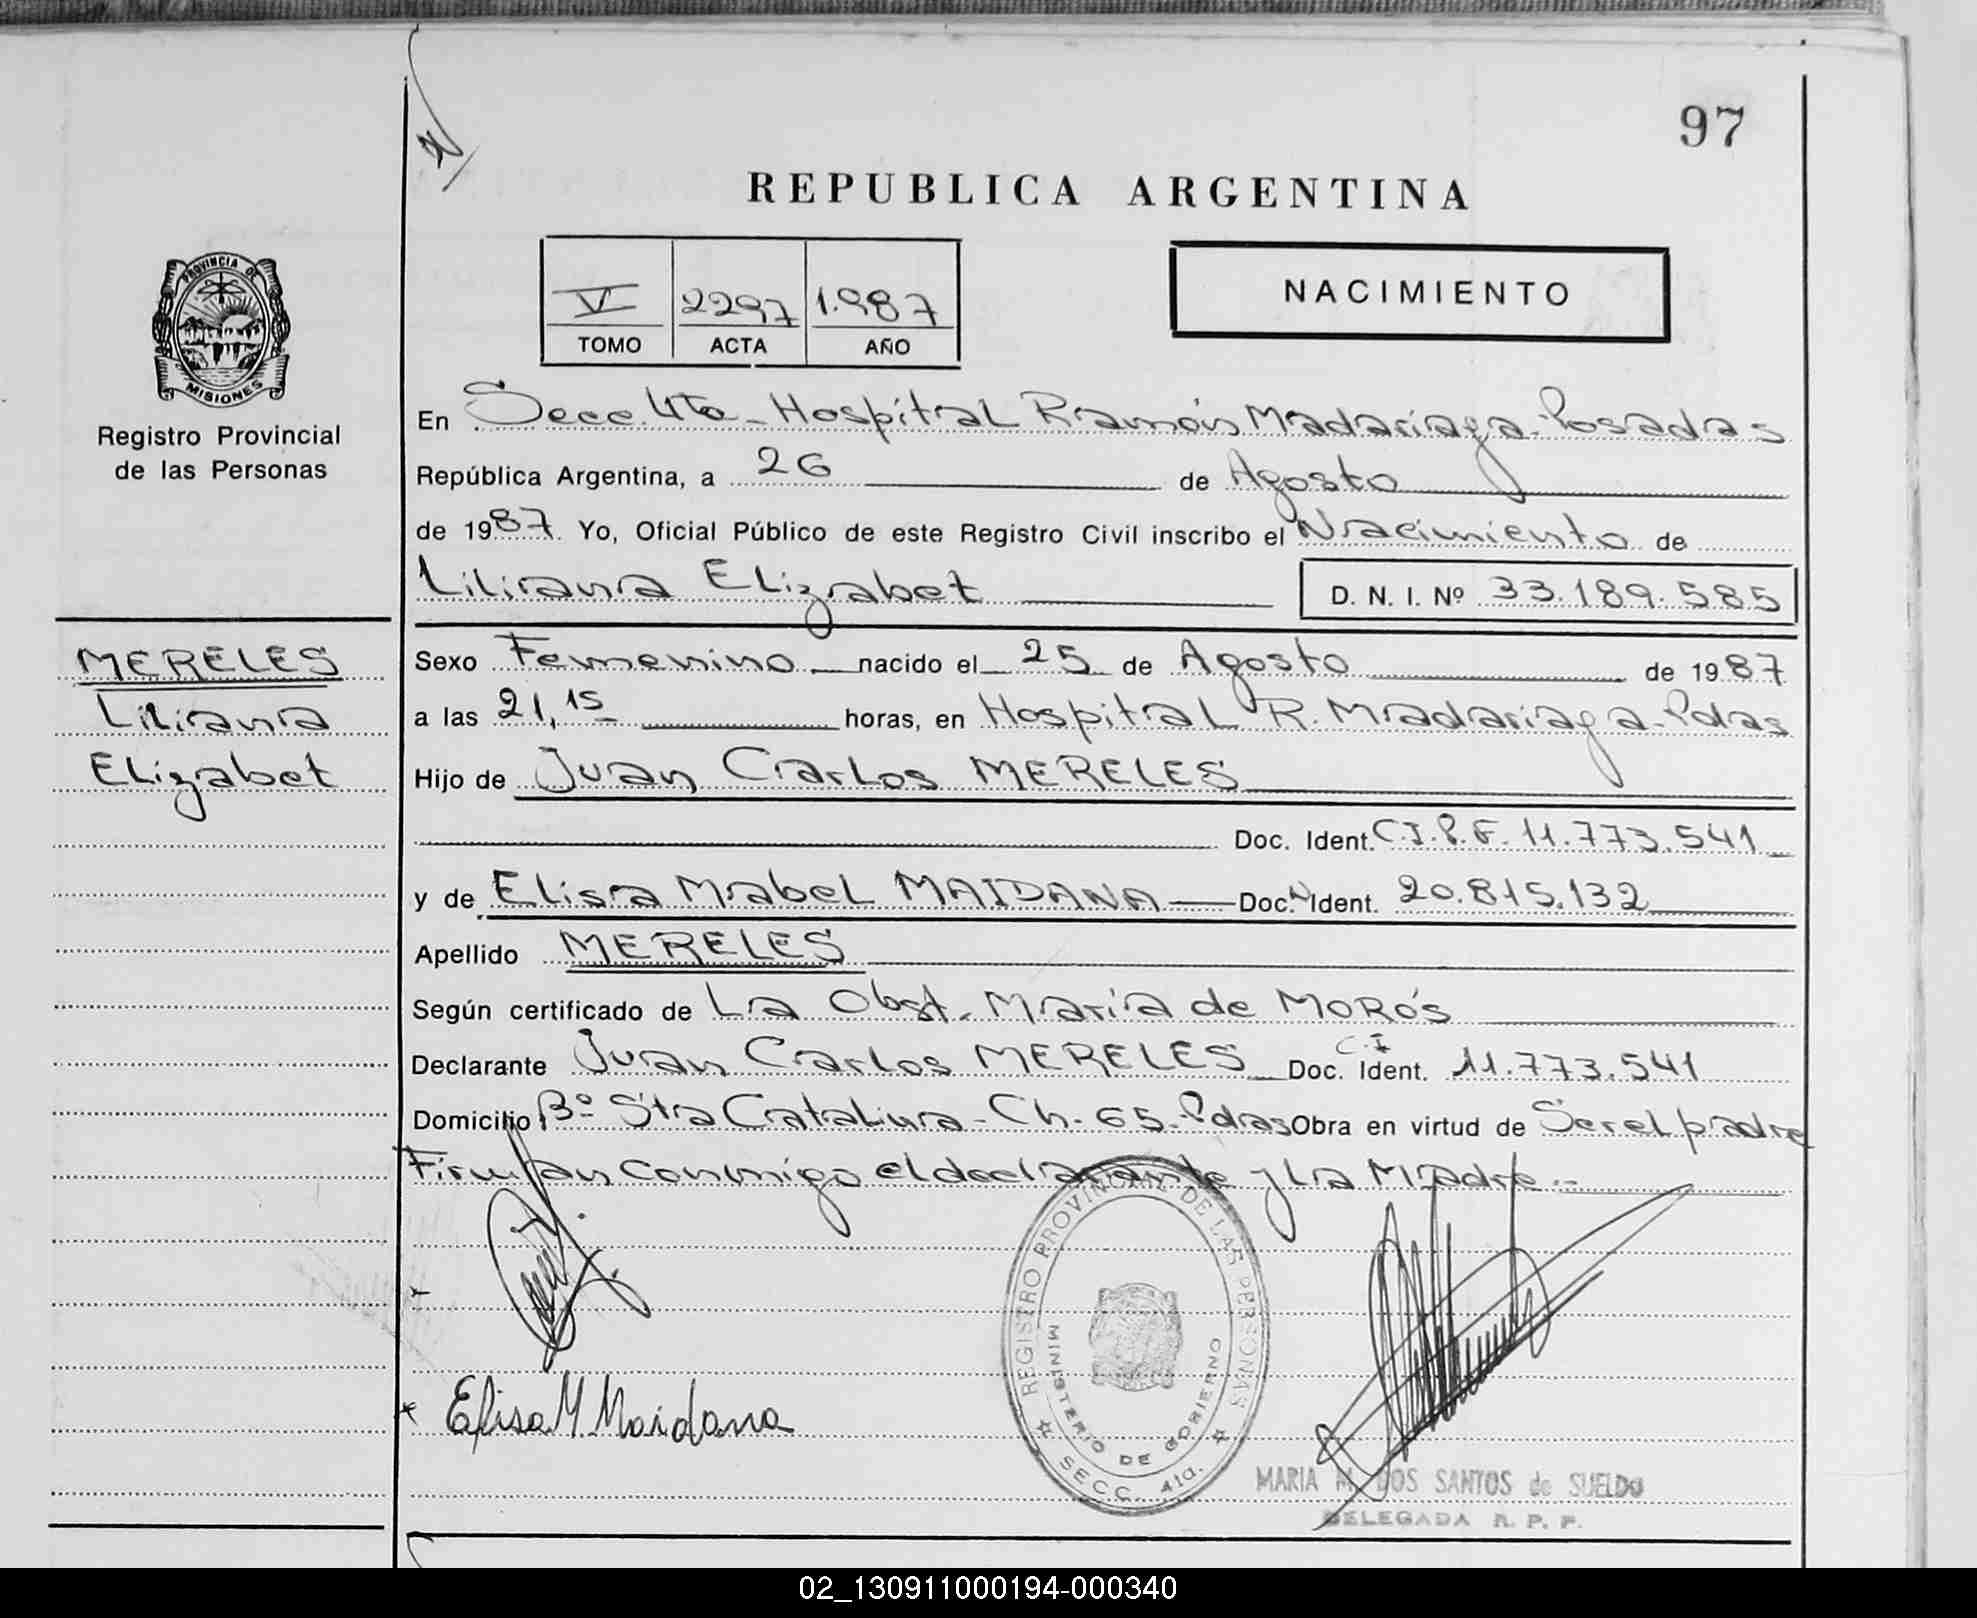 97
REPUBLICA ARGENTINA
PROVINCIA DE
MISIONES
Registro Provincial
de las Personas
VI 2297 1.987
TOMO ACTA AÑO
NACIMIENTO
En Secc. 4ta - Hospital Ramón Madariaga - Posadas
República Argentina, a 26 de Agosto
de 1987. Yo, Oficial Público de este Registro Civil inscribo el Nacimiento de
Liliana Elizabet D. N. I. Nº 33.189.585
MERELES
Liliana
Elizabet
Sexo Femenino nacido el 25 de Agosto de 1987
a las 21,15 horas, en Hospital R. Madariaga - Pdas
Hijo de Juan Carlos MERELES
Doc. Ident. C.I.P.F. 11.773.541
y de Elisa Mabel MAIDANA Doc. Ident. 20.815.132
Apellido MERELES
Según certificado de La Obst. María de MORÓS
Declarante Juan Carlos MERELES Doc. Ident. C.I 11.773.541
Domicilio Bº Sta Catalina - Ch. 65. Pdas Obra en virtud de Ser el padre
Firman conmigo el declarante y La Madre.-
Elisa M Maidana
REGISTRO PROVINCIAL DE LAS PERSONAS
MINISTERIO DE GOBIERNO
SECC. 4ta.
MARIA M. DOS SANTOS de SUELDO
DELEGADA R. P. P.
02_130911000194-000340